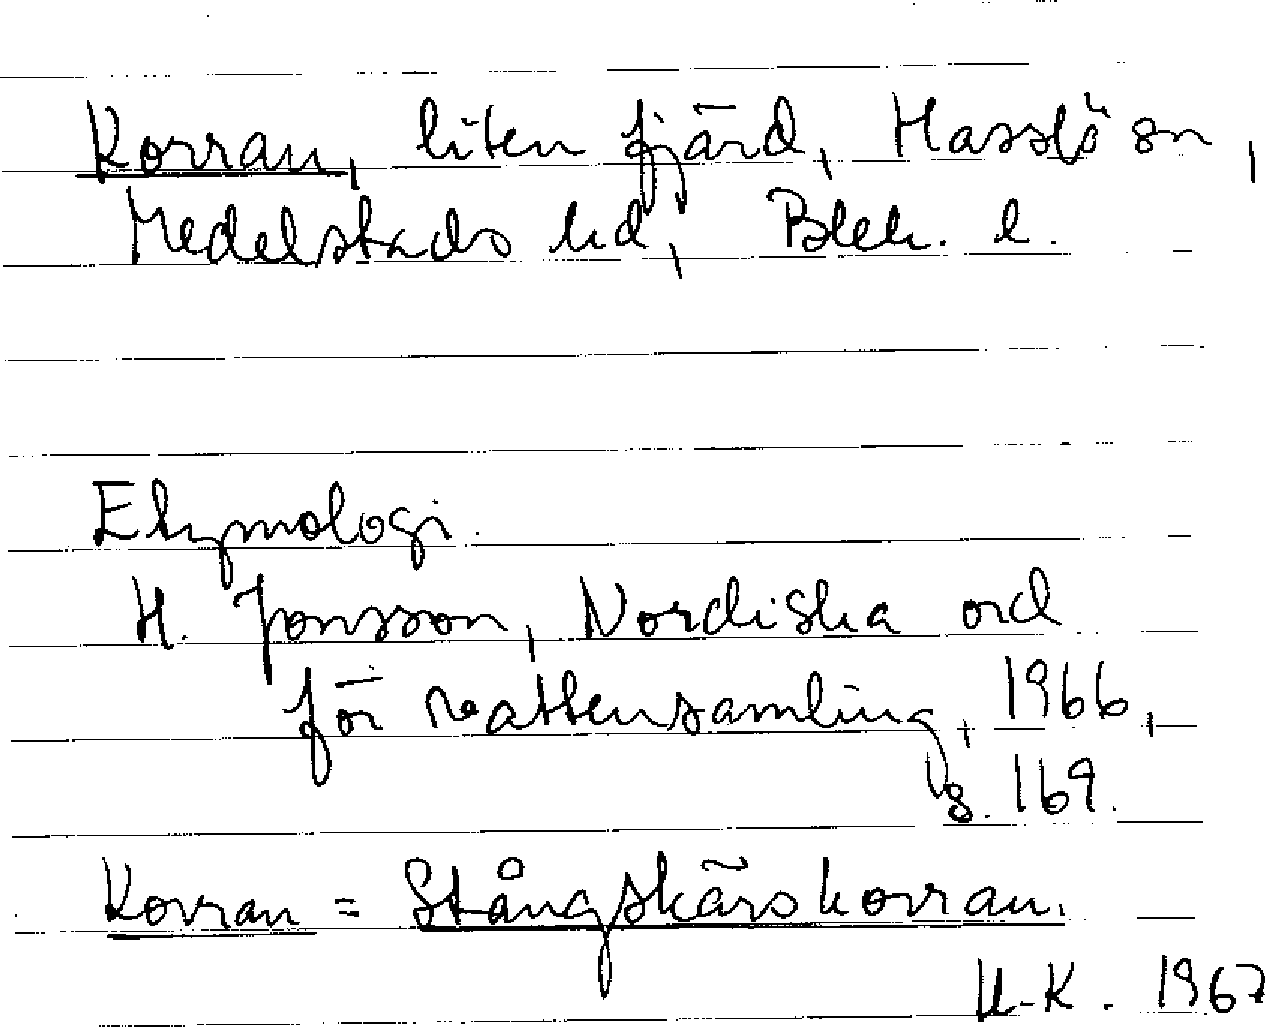 Korran, liten fjärd, Hasslö sn,
Medelstads hd, Blek. l.
Etymologi.
H. Jonsson, Nordiska ord
för vattensamling, 1966,
s. 169.
Korran = Stångskärskorran.
U-K. 1967